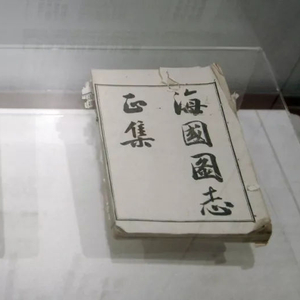 海國圖志
正集